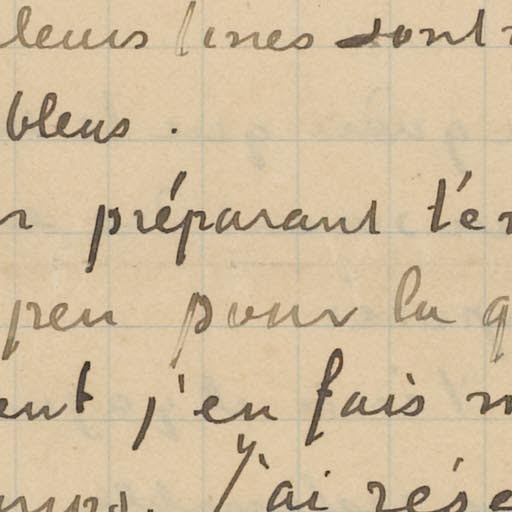 leurs lines sont
bleus.
préparant t'é
peu pour la q
ent j'en fais
J'ai rése